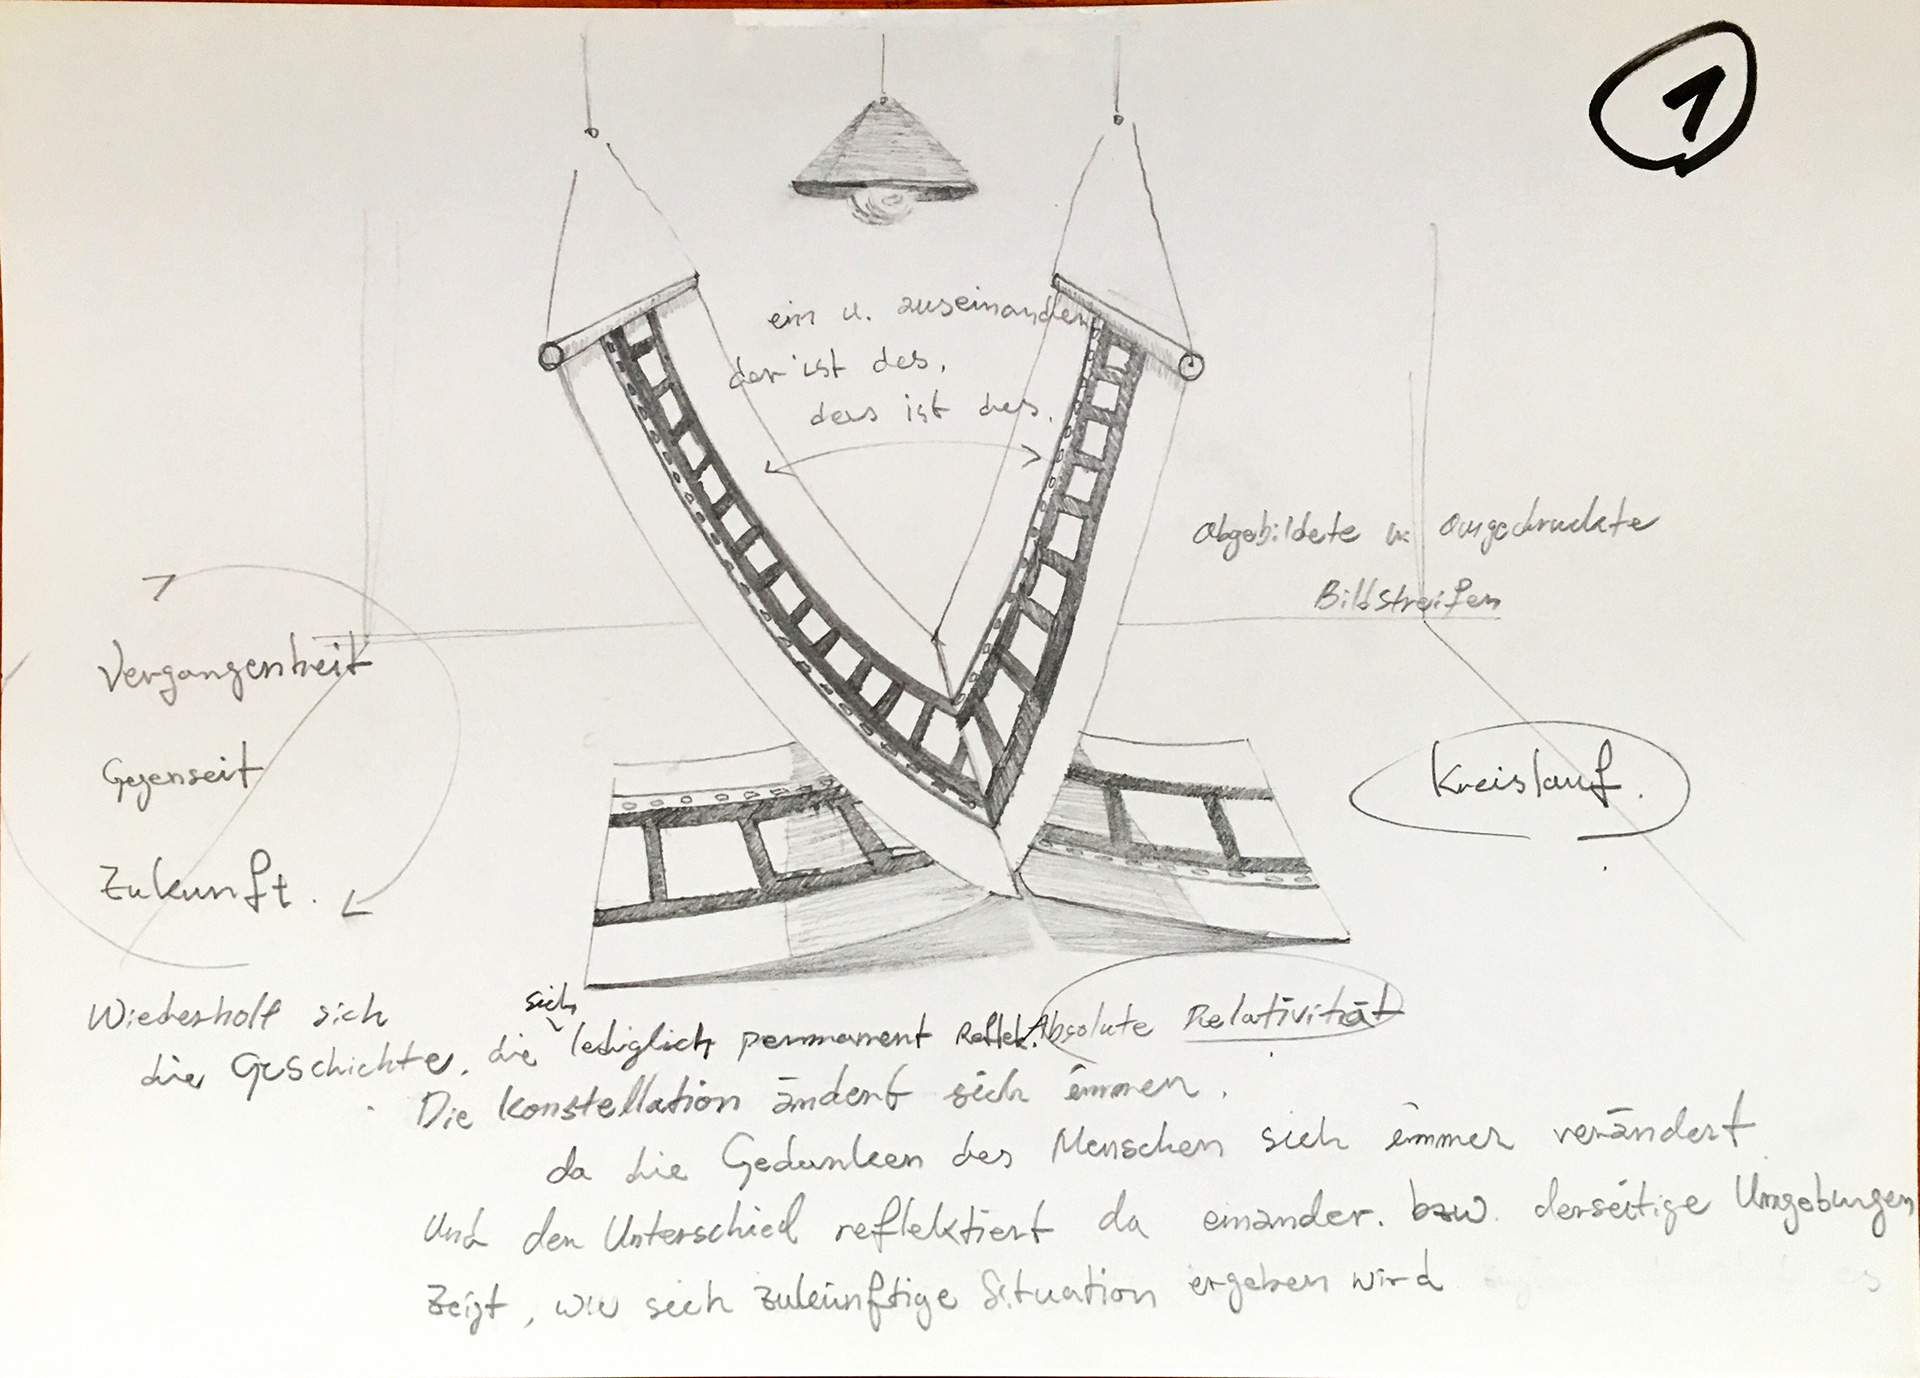 1
ein u. auseinander
der ist des,
das ist des.
Abgebildete u. ausgedruckte
Bildstreifen
Vergangenheit
Gegenseit
Zukunft.
Kreislauf.
Wiederholt sich
die Geschichte, die sich lediglich permanent Reflek.
Absolute Relativität
Die Konstellation ändert sich immer.
da die Gedanken des Menschen sich immer verändert
und den Unterschied reflektiert da einander. bzw. derseitige Umgebungen
zeigt, wie sich zukünftige Situation ergeben wird